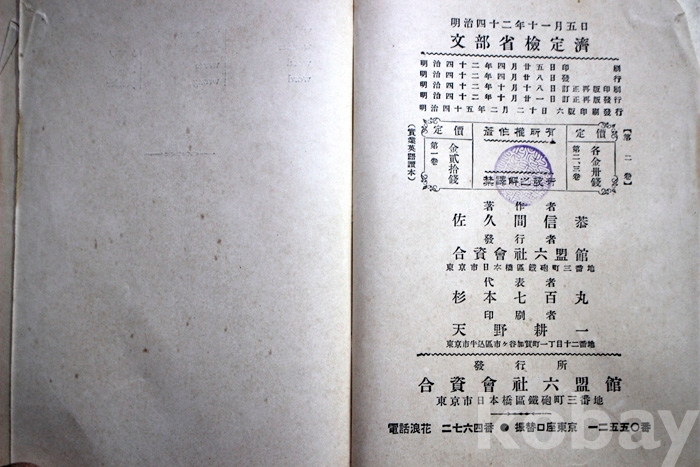 明治四十二年十一月五日
文部省檢定濟
明治四十二年四月廿五日印刷
明治四十二年四月廿八日發行
明治四十二年十月十八日訂正再版印刷
明治四十二年十月廿一日訂正再版發行
明治四十五年二月二十日六版印刷發行
【第二卷】
定價
各金卅錢
第二、三卷
有所權作著
禁譯解之設新
定價
金貳拾錢
第一卷
(實業英語讀本)
著作者
佐久間信恭
發行者
合資會社六盟館
東京市日本橋區鐵砲町三番地
代表者
杉本七百丸
印刷者
天野耕一
東京市牛込區市ヶ谷加賀町一丁目十二番地
發行所
合資會社六盟館
東京市日本橋區鐵砲町三番地
電話浪花 二七六四番●振替口座東京 一二五五〇番
kobay